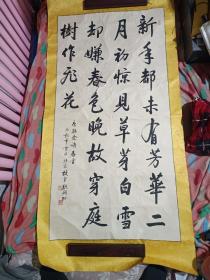 新年都未有芳華二
月初惊見草芽白雪
却嫌春色晚故穿庭
樹作飛花